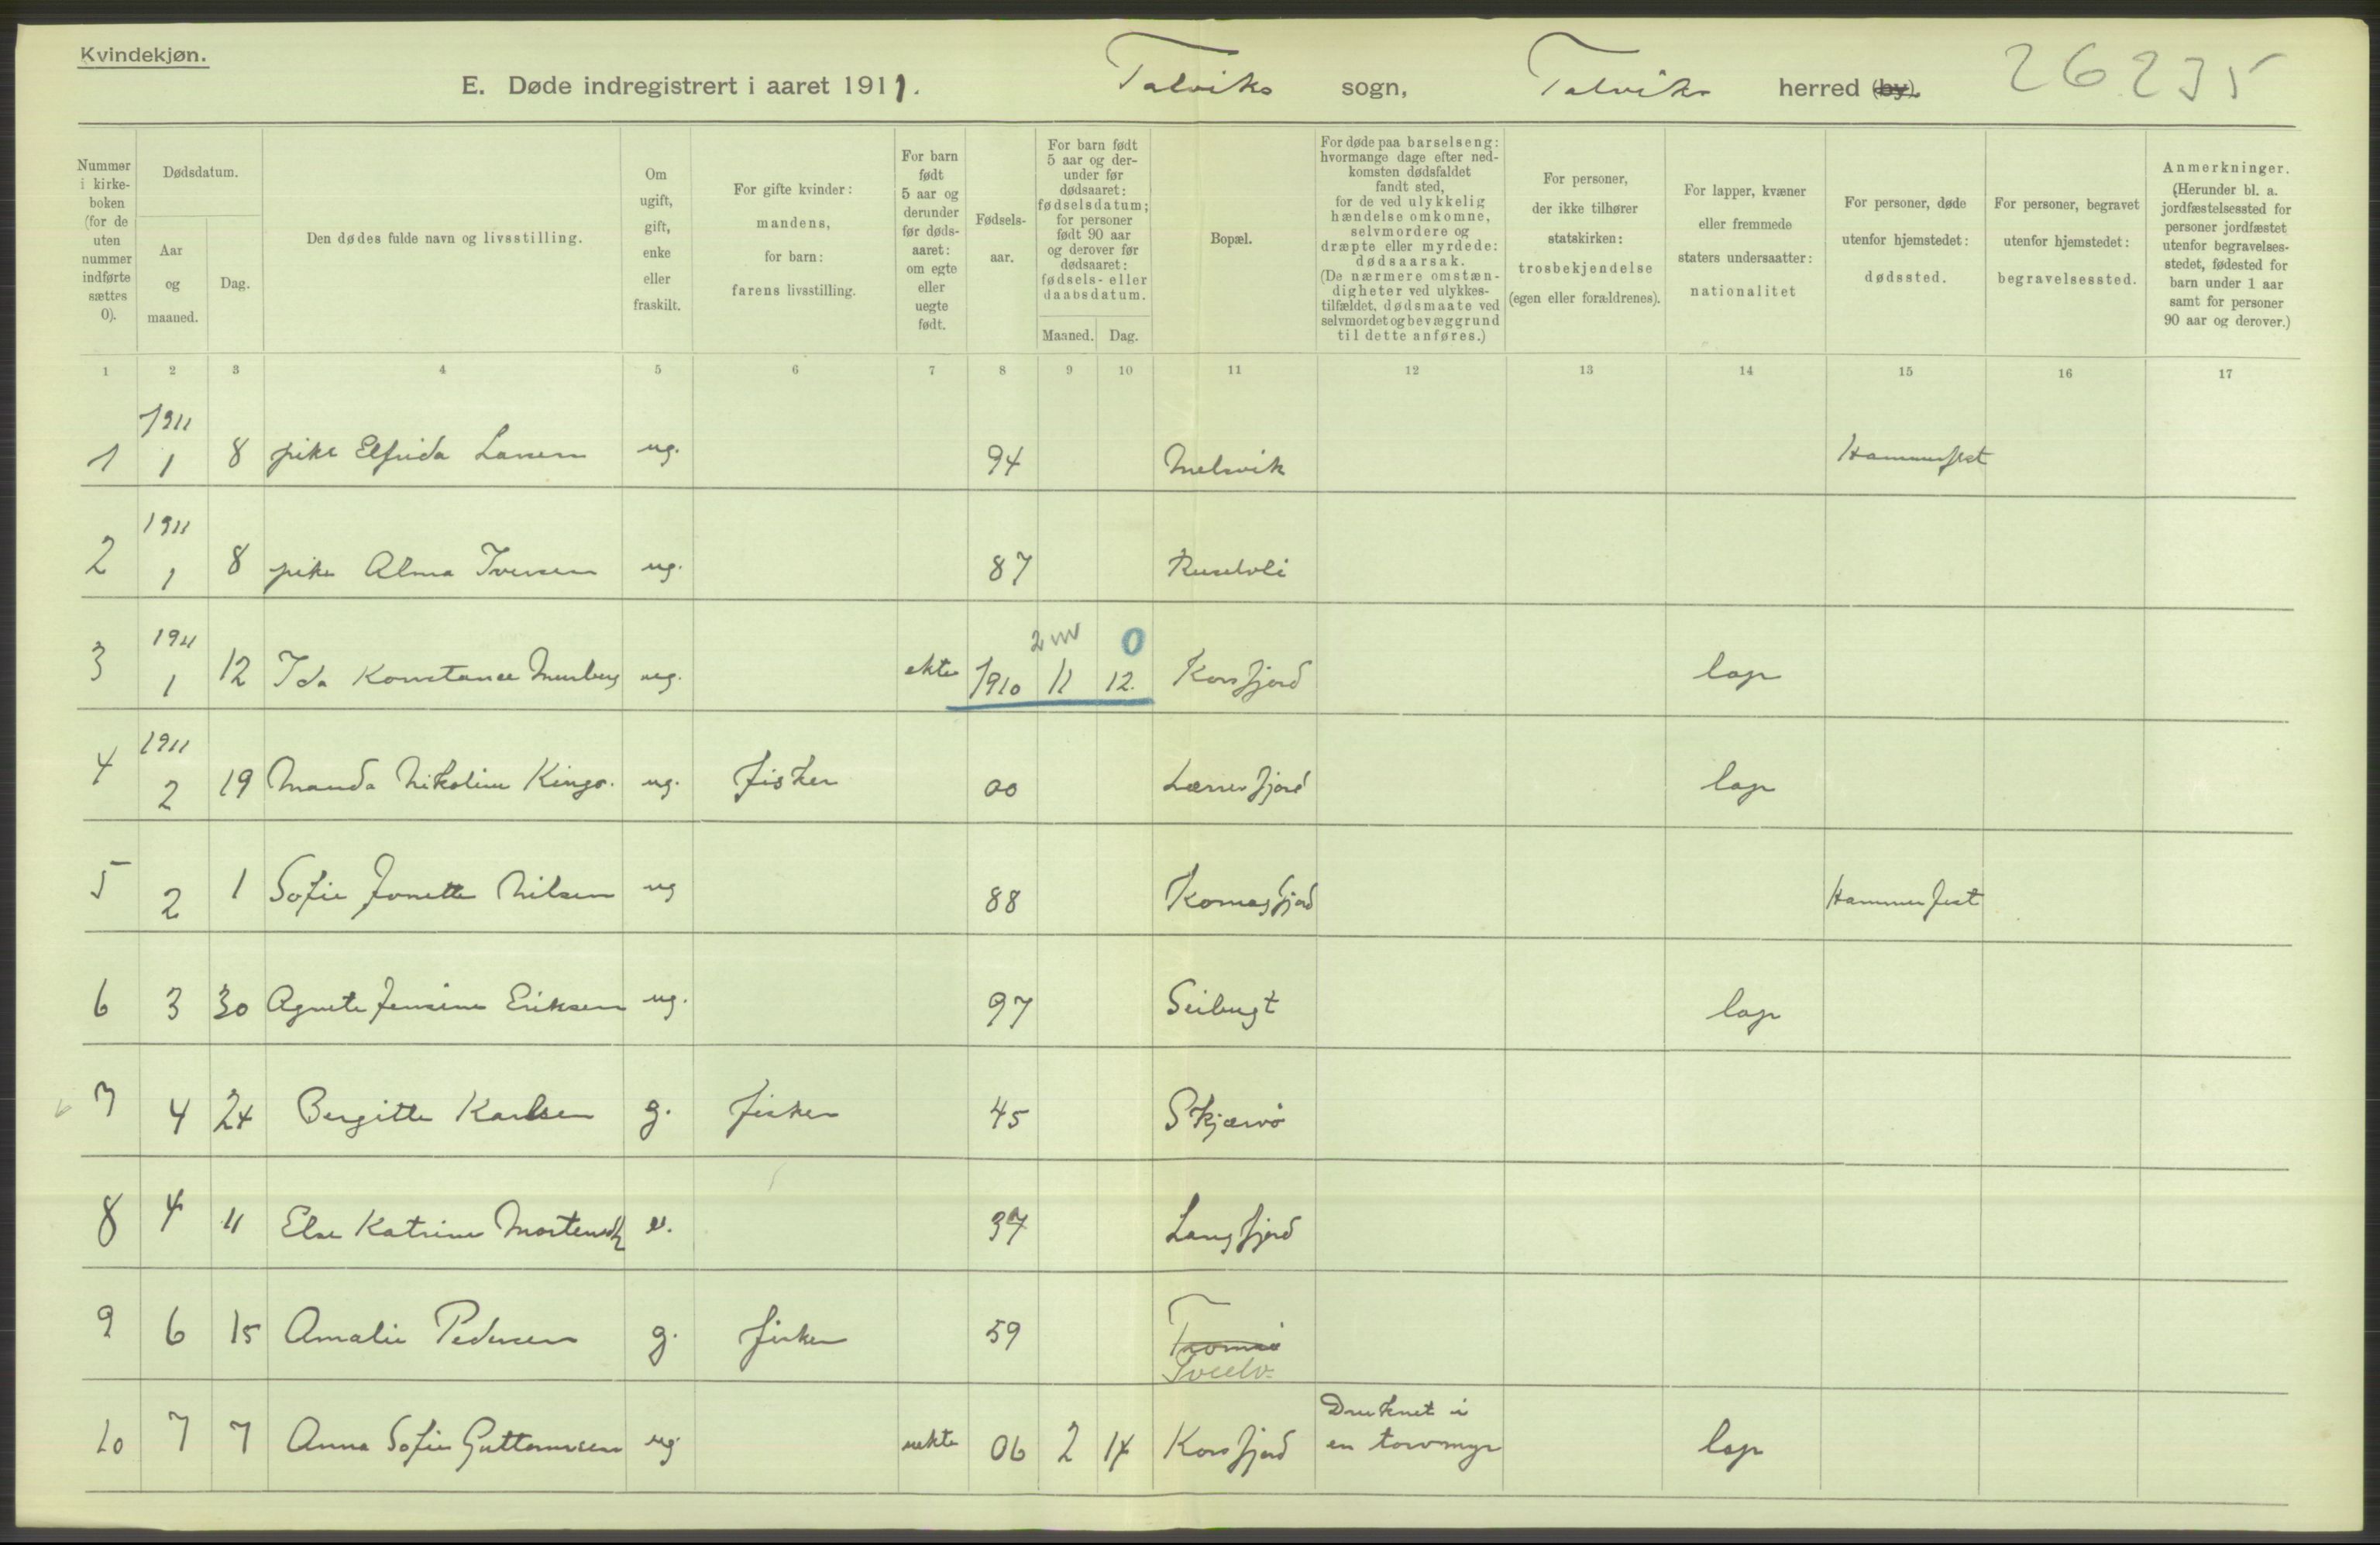 Kvindekjøn.
E. Døde indregistrert i aaret 1911. Talviks sogn, Talviks herred (by). 26235
Nummer i kirkeboken (for de uten nummer indførte sættes 0).
Dødsdatum.
Aar og maaned.
Dag.
Den dødes fulde navn og livsstilling.
Om ugift, gift, enke eller fraskilt.
For gifte kvinder: mandens, for barn: farens livsstilling.
For barn født 5 aar og derunder før dødsaaret: om egte eller uegte født.
Fødselsaar.
For barn født 5 aar og derunder før dødsaaret: fødselsdatum; for personer født 90 aar og derover før dødsaaret: fødsels- eller daabsdatum.
Maaned. Dag.
Bopæl.
For døde paa barselseng: hvormange dage efter nedkomsten dødsfaldet fandt sted, for de ved ulykkelig hændelse omkomne, selvmordere og dræpte eller myrdede: dødsaarsak. (De nærmere omstændigheter ved ulykkestilfældet, dødsmaate ved selvmordet og bevæggrund til dette anføres.)
For personer, der ikke tilhører statskirken: trosbekjendelse (egen eller forældrenes).
For lapper, kvæner eller fremmede staters undersaatter: nationalitet
For personer, døde utenfor hjemstedet: dødssted.
For personer, begravet utenfor hjemstedet: begravelsessted.
Anmerkninger. (Herunder bl. a. jordfæstelsessted for personer jordfæstet utenfor begravelsesstedet, fødested for barn under 1 aar samt for personer 90 aar og derover.)
1 2 3 4 5 6 7 8 9 10 11 12 13 14 15 16 17
1 1911 1 8 pike Elfrida Larsen ug. 94 Melsvik Hammerfest
2 1911 1 8 pike Alma Iversen ug. 87
3 1911 1 12 Ida Konstance ug. ekte 1910 2 m 11 0 12. Korsfjord lap
4 1911 2 19 Manda Nikoline Kingo. ug. fisker 00 lap
5 2 1 Sofie Jonette Nilsen ug 88 Komagfjord Hammerfest
6 3 30 Agnete Jensine Eriksen ug. 97 Seibugt lap
7 4 24 Bergitte Karlsen g. fisker 45 Skjærvø
8 4 11 Else Katrine e. 37 Langfjord
9 6 15 Amalie Pedersen g. fisker 59 Tromsø
10 7 7 Anna Sofie Guttormsen ug. uekte 06 2 14 Korsfjord Druknet i
en torvmyr lap